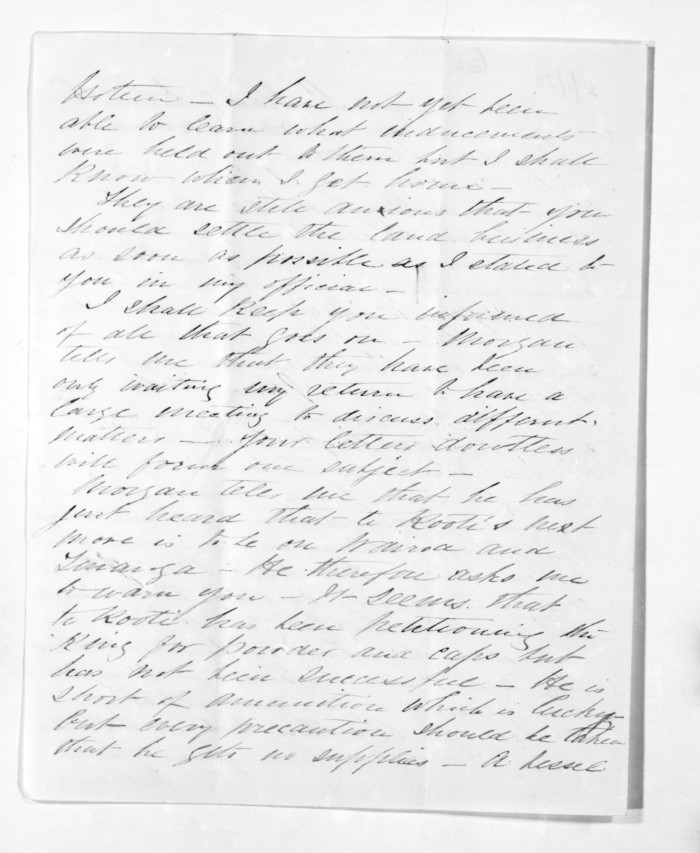 I have not yet been
able to learn what inducements
were held out to them but I shall
know when I get home —
They are still anxious that you
should settle the land business
as soon as possible as I stated to
you in my official —
I shall keep you informed
of all that goes on — Morgan
tells me that they have been
only waiting my return to have a
large meeting to discuss different
matters — Your letters doubtless
will form one subject —
Morgan tells me that he has
just heard that te Kooti's next
move is to be on Wairoa and
Turanga — He therefore asks me
to warn you — It seems that
te Kooti has been petitioning the
King for powder and caps but
has not been successful — He is
short of ammunition which is lucky
but every precaution should be taken
that he gets no supplies — A vessel